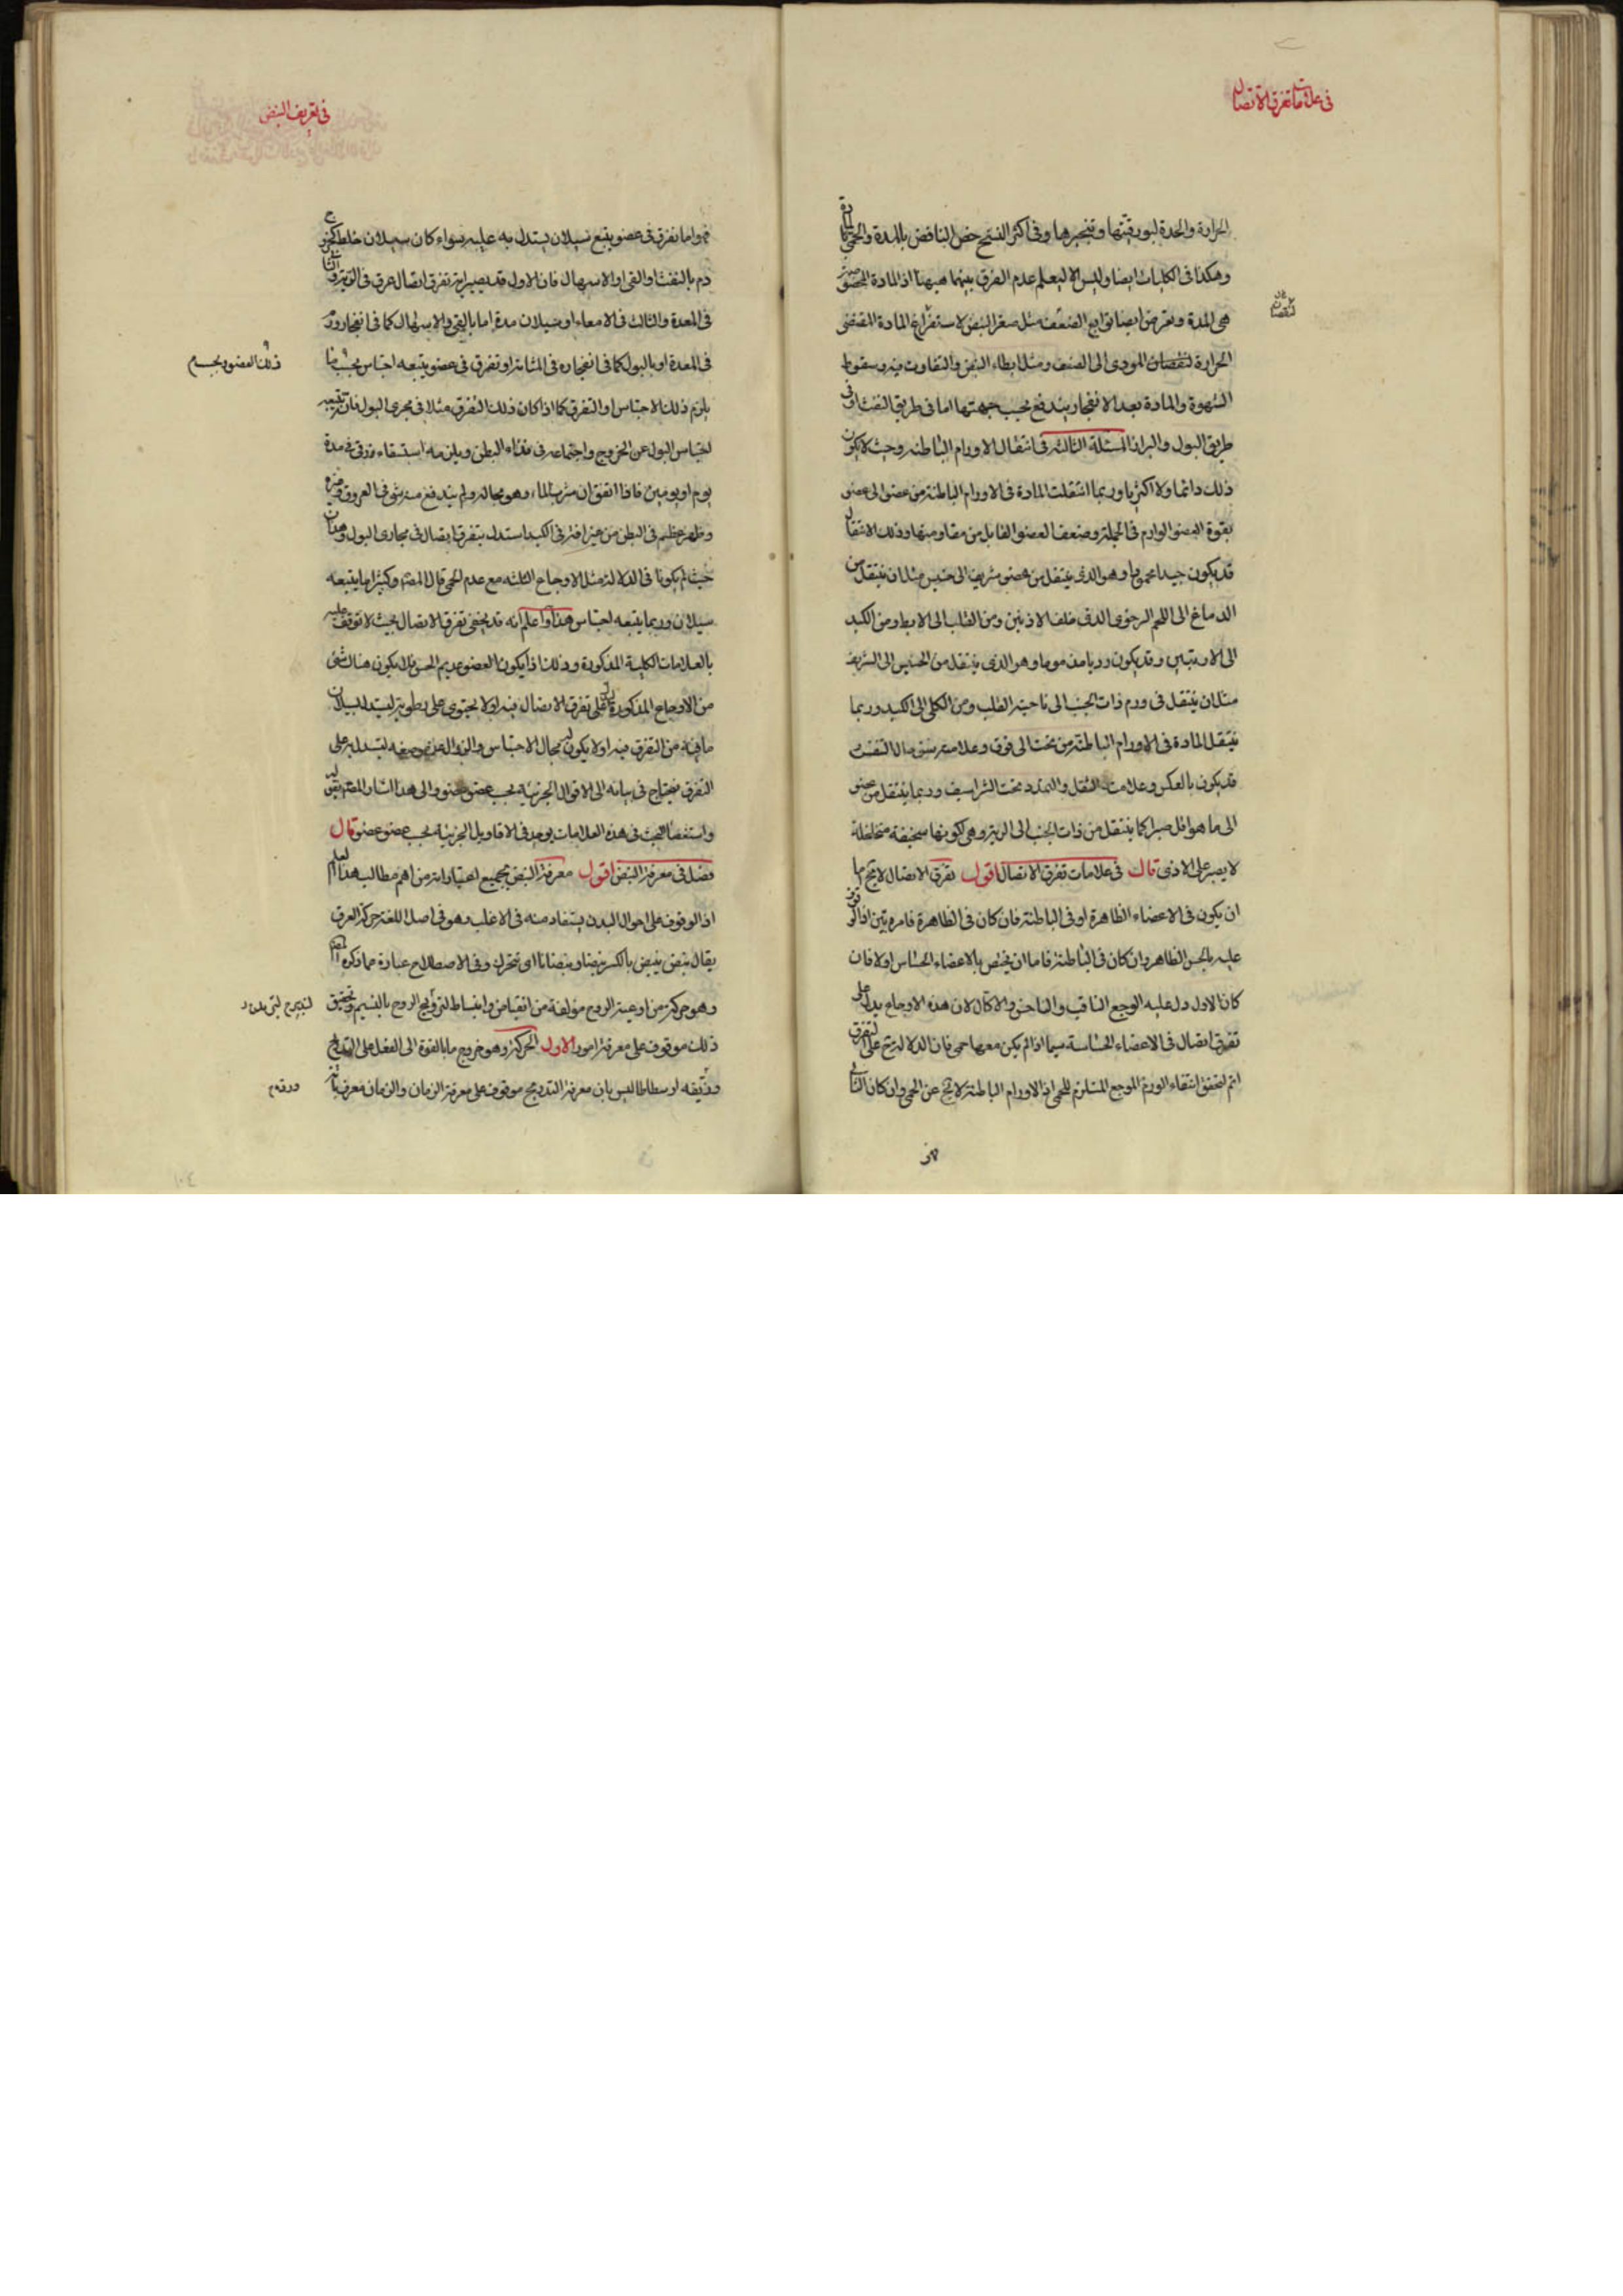 في علامات تفرق الاتصال
الحرارة والحدة لبورقيتها وتفجيرها وفي اكثر النسخ حض النافض بالمدة والحمى
وهكذا في الكليات ايضا وليس الا ليعلم عدم الفرق بينهما ههنا اذ المادة
هي المدة ويعرض ايضا توابع الضعف مثل صغر النبض لاستفراغ المادة المقتضى
لنقصان
الحرارة لنقصان المودى الى الضعف ومثل ابطاء النبض والتفاوت فيه وسقوط
الشهوة والمادة بعد الانفجار يندفع بحسب جهتها اما في طريق النفث او في
طريق البول والبراز المسئلة الثالثة في انتقال الاورام الباطنه وحيث لا يكون
ذلك دائما ولا اكثريا وربما انتقلت المادة في الاورام الباطنة من عضو الى عضو
بقوة العضو الوارم في الجملة وضعف العضو القابل من مقاومتها وذلك الانتقال
قد يكون جيدا محمودا وهو الذى ينتقل من عضو شريف الى خسيس مثل ان ينتقل من
الدماغ الى اللحم الرخوى الذى خلف الاذنين ومن القلب الى الابط ومن الكبد
الى الاربتين وقد يكون رديا مذموما وهو الذى ينتقل من الخسيس الى الشريف
مثل ان ينتقل في ورم ذات الجنب الى ناحية القلب ومن الكلى الى الكبد وربما
ينتقل المادة في الاورام الباطنة من تحت الى فوق وعلامته
قد يكون بالعكس وعلامته الثقل والتمدد تحت الشراسيف وربما ينتقل من عضو
الى ما هو اقل صبرا كما ينتقل من ذات الجنب الى الرية وهي لكونها سخيفة متخلخلة
لا يصبر على الاذى قال في علامات تفرق الاتصال اقول تفرق الاتصال لا يخ اما
ان يكون في الاعضاء الظاهرة او في الباطنة فان كان في الظاهرة فامره بين اذ الوقوف
عليه بالحس الظاهر وان كان في الباطنة فاما ان يختص بالاعضاء الحساس اولا فان
كان الاول دل عليه الوجع الثاقب والناخس والاكال لان هذه الاوجاع يدل على
تفرق اتصال في الاعضاء الحساسة سيما اذا لم يكن معها حمى فان الدلالة ح على التفرق
اتم لتحقق انتفاء الورم الموجع المستلزم للحمى اذ الاورام الباطنة لا يخ عن الحمى وان كان الثاني
في تعريف النبض
فهو اما تفرق في عضو يتبع سيلان يستدل به عليه سواء كان سيلان خلط
دم بالنفث او القى او الاسهال فان الاول قد يصير اية تفرق اتصال عرق في الرية والثاني
في المعدة والثالث في الامعاء او سيلان مدة اما بالقى والاسهال كما في انفجار ورم
في المعدة او بالبول كما في انفجاره في المثانة او تفرق في عضو يتبعه احتباس بحسب
يلزم ذلك الاحتباس او التفرق كما اذا كان ذلك التفرق مثلا في مجرى البول فانه يتبعه
احتباس البول عن الخروج واجتماعه في فضاء البطن ويلزمه استسقاء زقى في مدة
يوم او يومين فاذا اتفق ان شرب الماء وهو بحاله ولم يندفع منه شئ في العروق وغيره
وظهر عظيم في البطن من غير افة في الكبد استدل بتفرق اتصال في مجارى البول
حيث لم يكونا في الدلالة مثل الاوجاع الثلثه مع عدم الحمى قال المصنف وكثيرا ما يتبعه
سيلان وربما يتبعه احتباس هذا واعلم انه قد يخفى تفرق الاتصال بحيث لا توقف عليه
بالعلامات الكلية المذكورة وذلك اذا يكون العضو عديم الحس فلا يكون هناك شئ
من الاوجاع المذكورة على تفرق الاتصال فيه او لا يحتوى على رطوبة ليستدل بسيلان
ما فيه من التفرق فيه او لا يكون له مجال الاحتباس والزوال عن موضعه ليستدل به على
التفرق فيحتاج في بيانه الى الاقوال الجزئية بحسب عضو عضو والى هذا اشار المصنف
واستقصا البحث في هذه العلامات يوجد في الاقاويل الجزئية بحسب عضو عضو قال
فصل في معرفة النبض اقول معرفة النبض بجميع اعتباراته من اهم مطالب هذا العلم
اذ الوقوف على احوال البدن يستفاد منه في الاغلب وهو في اصل اللغة حركة العرق
يقال نبض ينبض بالكسر نبضا ونبضانا اى تحرك وفي الاصطلاح عبارة عما ذكره المصنف
وهو حركة من اوعية الروح مولفة من انقباض وانبساط لترويح الروح بالنسيم وتحقيق
ذلك موقوف على معرفة امور الاول الحركة وهو خروج ما بالقوة الى الفعل على التدريج
وزيفه ارسطاطاليس بان معرفة التدريج موقوف على معرفة الزمان والزمان معرف بانه